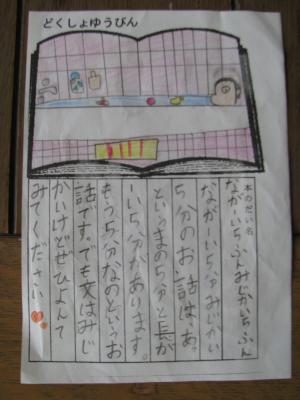 どくしょゆうびん
本のだい名
ながーいちふんみじかいちふん
ながーい5分みじかい
5分のお話は、あ。
というまの5分と長が
ーい5分があいます。
もう5分なのというお
話です。でも文はみじ
かいけどぜひよんて
みてください